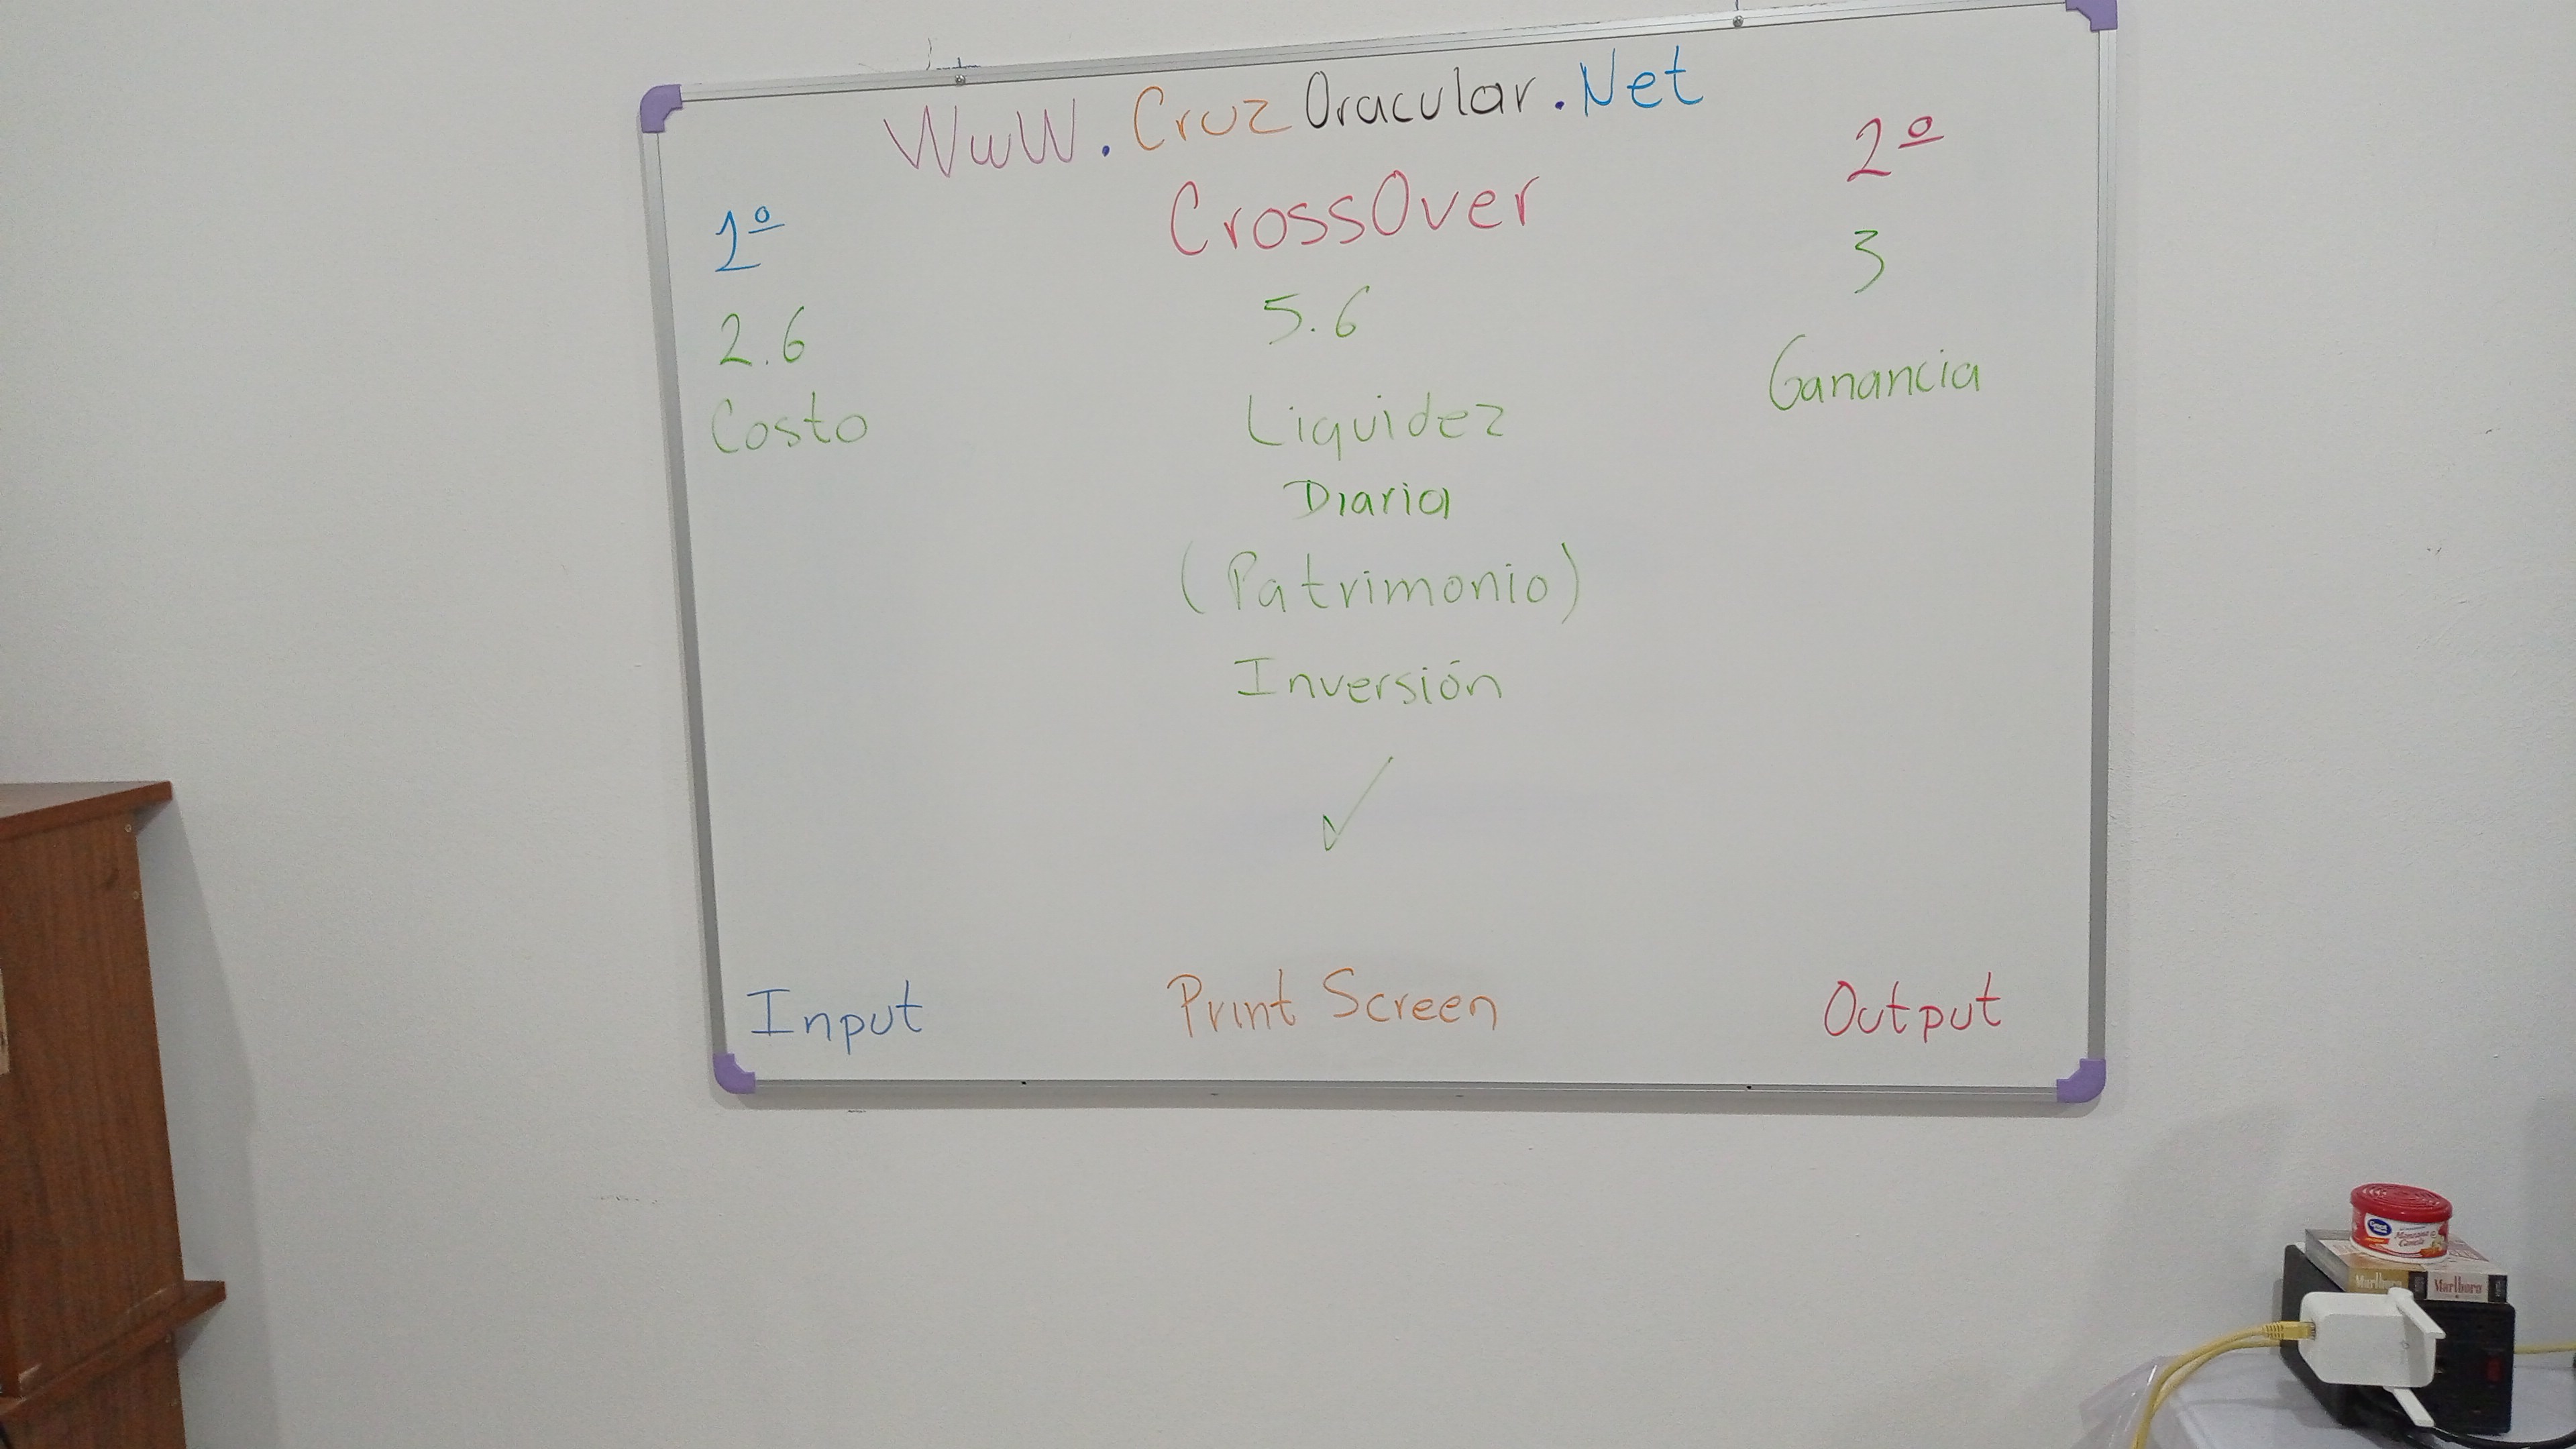 WwW.CruzOracular.Net
CrossOver
1º
2.6
Costo
5.6
Liquidez
Diaria
(Patrimonio)
Inversión
✓
2º
3
Ganancia
Input
Print Screen
Output
Great Value
Manzana
Canela
Marlboro
Marlboro